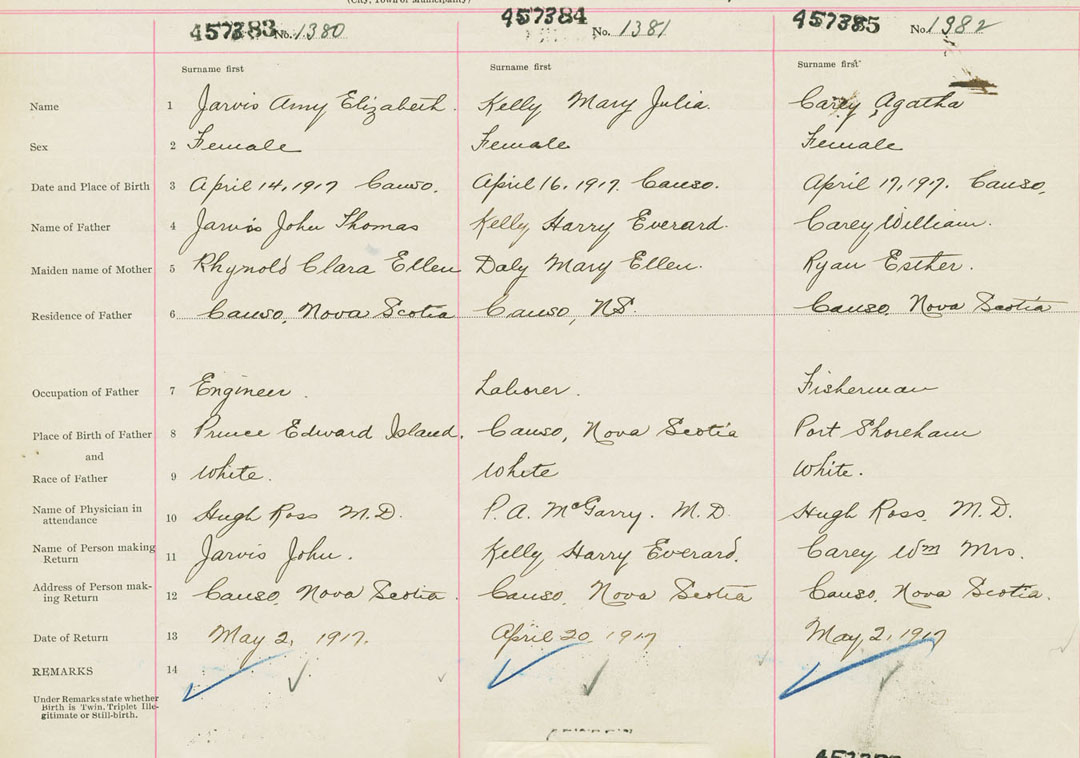 (City, Town or Municipality)
457383 No. 1380 457384 No. 1381 457385 No. 1382
Surname first Surname first Surname first
Name 1 Jarvis Amy Elizabeth. Kelly Mary Julia. Carey Agatha
Sex 2 Female Female Female
Date and Place of Birth 3 April 14, 1917 Canso. April 16, 1917. Canso. April 17, 1917. Canso.
Name of Father 4 Jarvis John Thomas Kelly Harry Everard. Carey William.
Maiden name of Mother 5 Rhynold Clara Ellen Daly Mary Ellen. Ryan Esther.
Residence of Father 6 Canso, Nova Scotia Canso, NS. Canso, Nova Scotia
Occupation of Father 7 Engineer. Laborer. Fisherman
Place of Birth of Father 8 Prince Edward Island. Canso, Nova Scotia Port Shoreham
and
Race of Father 9 White. White White.
Name of Physician in
attendance 10 Hugh Ross M.D. P.A. McGarry. M.D. Hugh Ross, M.D.
Name of Person making
Return 11 Jarvis John. Kelly Harry Everard. Carey Wm Mrs.
Address of Person mak-
ing Return 12 Canso, Nova Scotia. Canso, Nova Scotia Canso, Nova Scotia.
Date of Return 13 May 2, 1917. April 20 1917 May, 2, 1917
REMARKS 14
Under Remarks state whether
Birth is Twin, Triplet Ille-
gitimate or Still-birth.